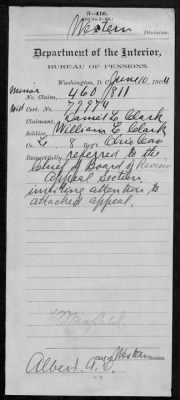 3-416.
Western
Division.
Department of the Interior,
BUREAU OF PENSIONS.
Washington, D. C., June 10, 1904
Minor No. Claim, 460811
Wid Cert. No. 79974
Claimant, Daniel L. Clark
Soldier, William E. Clark
Co. 8 Ohio Cav
Respectfully referred to the
Chief of Board of Review
Appeal Section
inviting attention to
attached appeal.
Chief of Western Division.
Albert. A. C.